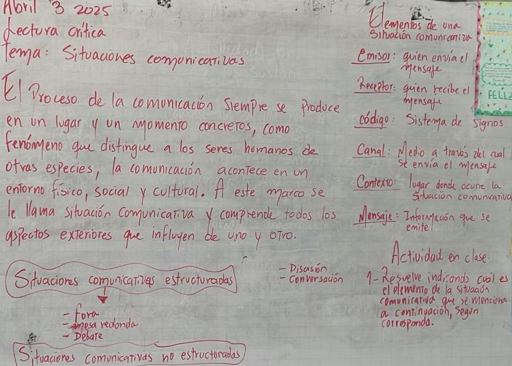 Abril 3 2025
Lectura crítica
Tema: Situaciones comunicativas
El Proceso de la comunicación siempre se produce
en un lugar y un momento concretos, como
fenómeno que distingue a los seres humanos de
otras especies, la comunicación acontece en un
entorno físico, social y cultural. A este marco se
le llama situación comunicativa y comprende todos los
aspectos exteriores que influyen de uno y otro.
Situaciones comunicativas estructuradas
- foro
- mesa redonda
- Debate
Situaciones comunicativas no estructuradas
- Discusión
- Conversación
Elementos de una
situación comunicativa
Emisor: quien envía el
mensaje
Receptor: quien recibe el
mensaje
código: Sistema de signos
Canal: Medio a través del cual
se envía el mensaje
Contexto: lugar donde ocurre la
situación comunicativa
Mensaje: Información que se
emite
Actividad en clase
1- Resuelve indicando cual es
el elemento de la situación
comunicativa que se menciona
a continuación, según
corresponda.
FELIZ